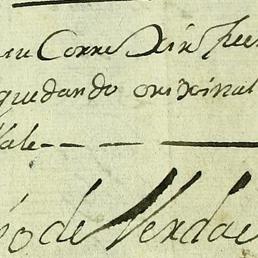 Corre Xir
quedando original
Vale
o de Verda